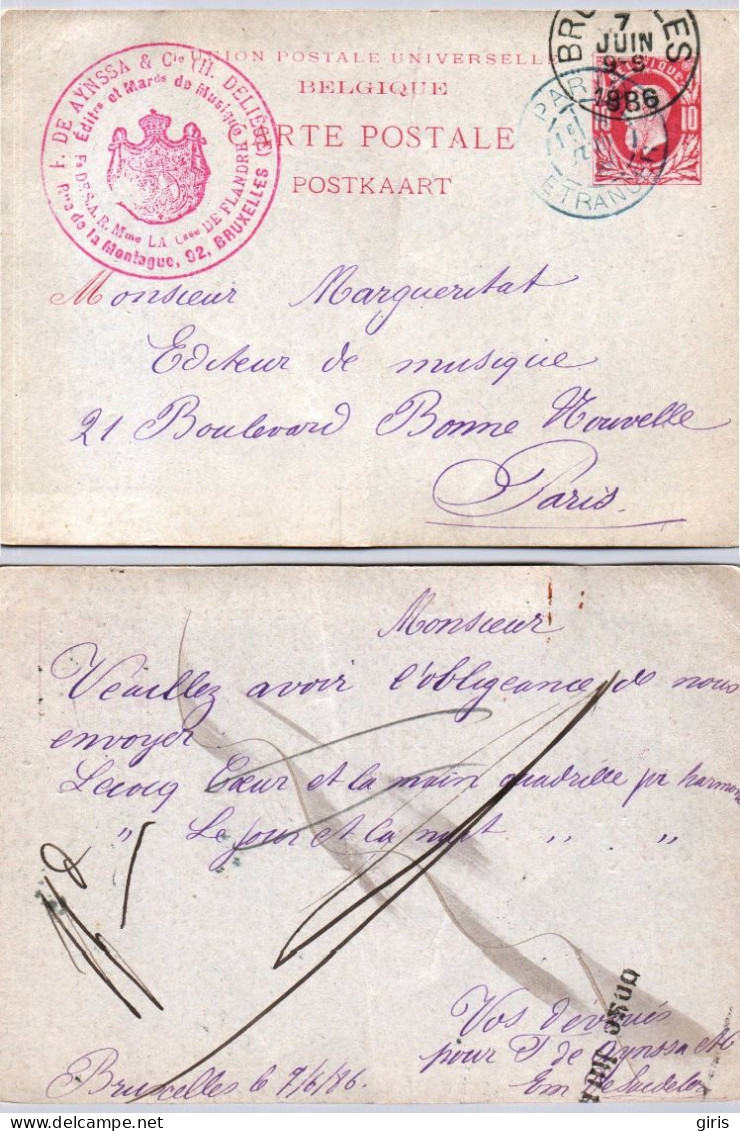 F. DE AYNSSA & Cie (TH. DELIÉGE)
Éditrs et Mards de Musique
Fs DE S.A.R. Mme LA Csse DE FLANDRE
Rue de la Montagne, 92, BRUXELLES
UNION POSTALE UNIVERSELLE
BELGIQUE
RTE POSTALE
POSTKAART
7
JUIN
9-S
1886
PAR
ETRANG
10
Monsieur Margueritat
Editeur de musique
21 Boulevard Bonne Nouvelle
Paris
Monsieur
Veuillez avoir l'obligeance de nous
envoyer
Lecocq Cœur et la main quadrille pr harmonie
" Le jour et la nuit " "
Vos dévoués
pour F de Aynssa & C
Bruxelles le 7/6/86.
Em
giris
delcampe.net